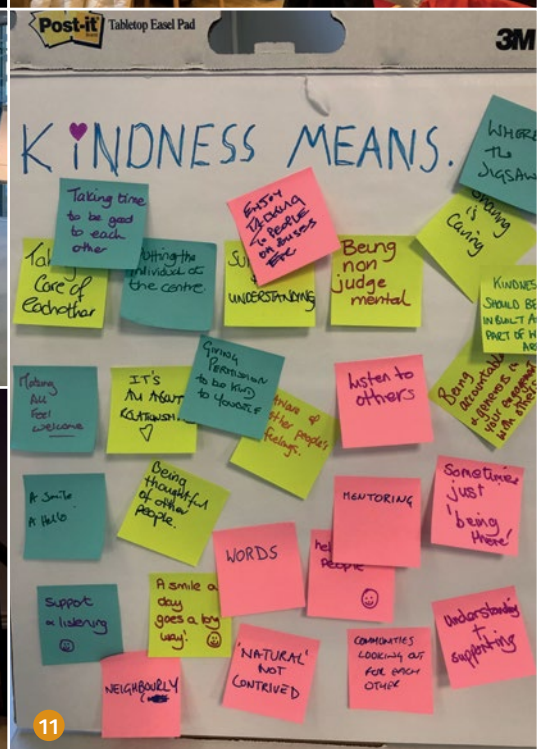 Post-it Tabletop Easel Pad
3M
KINDNESS MEANS.
WHERE
THE
JIGSAW
Taking time
to be good
to each
other
ENJOY
TALKING
TO PEOPLE
ON BUSES
ETC
is
Caring
Care of
Eachother
Putting the
individual at
the centre.
UNDERSTANDING
Being
non
judge
mental
KINDNESS
SHOULD BE
IN BUILT AS
PART OF
Making
All
Feel
welcome
IT'S
ALL ABOUT
RELATIONSHIPS
GIVING
PERMISSION
to be KIND
to YOURSELF
other people's
feelings.
Listen to
others
Being
accountable
& generous in
your engagement
with others
A Smile
A Hello
Being
thoughtful
of other
people.
WORDS
MENTORING
people
Sometimes
just
'being
there'
Support
& listening
A smile a
day
goes a long
way.
NEIGHBOURLY
'NATURAL'
NOT
CONTRIVED
COMMUNITIES
LOOKING OUT
FOR EACH
OTHER
Understanding
+
supporting
11